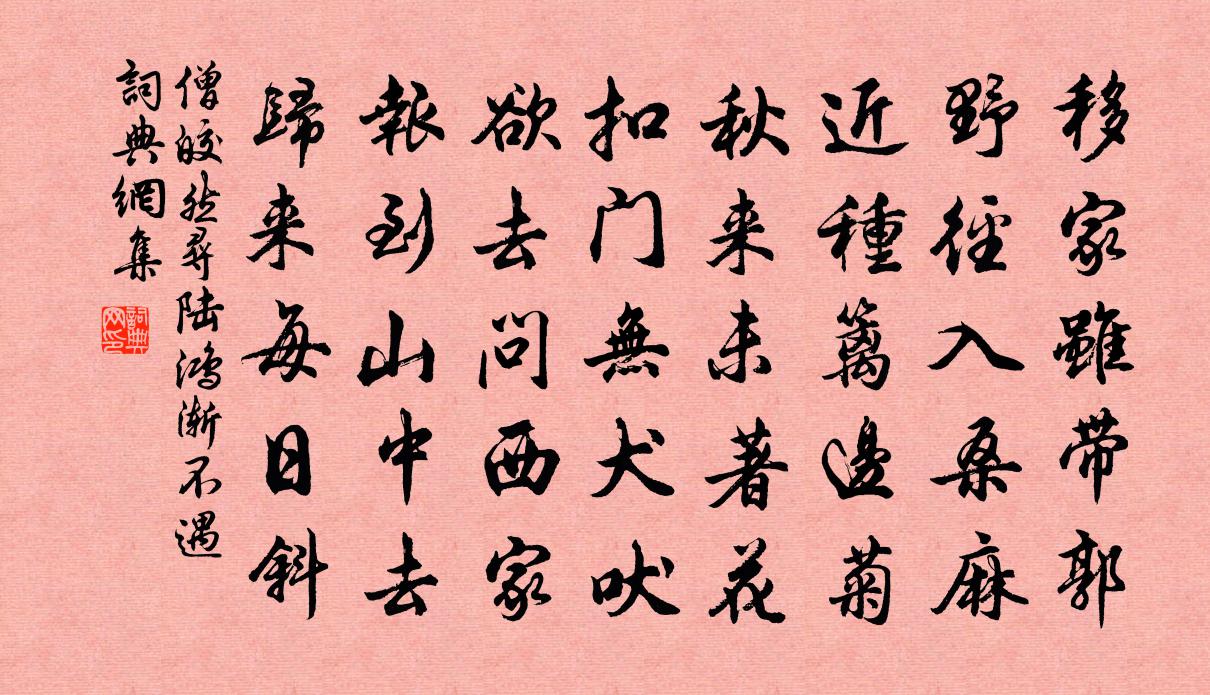 移家雖带郭
野徑入桑麻
近種籬邊菊
秋来未著花
扣门無犬吠
欲去问西家
報到山中去
歸来每日斜
僧皎然尋陆鴻渐不遇
詞典網集
詞典
网印